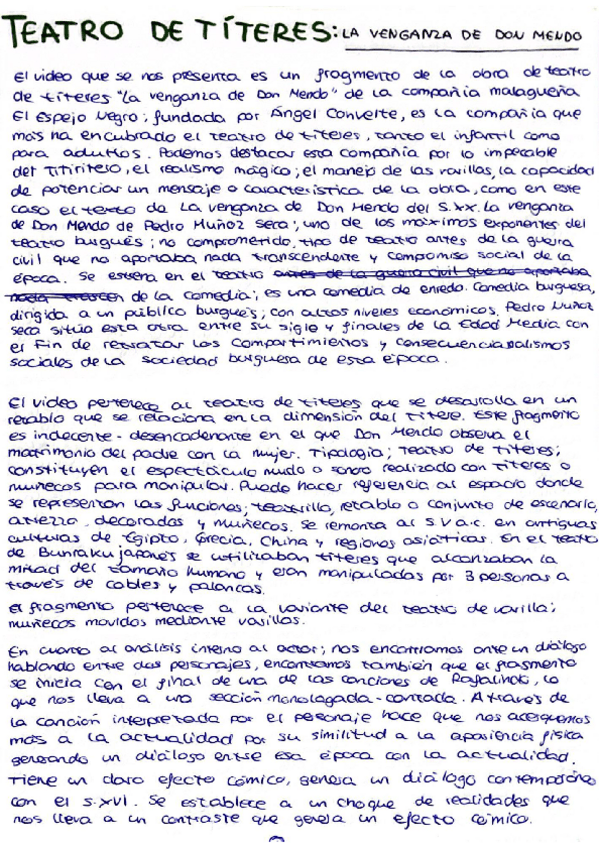 TEATRO DE TÍTERES: LA VENGANZA DE DON MENDO
El video que se nos presenta es un fragmento de la obra de teatro
de títeres "La venganza de Don Mendo" de la compañía malagueña
El Espejo Negro; fundada por Ángel Convette, es la compañía que
más ha encubrado el teatro de títeres, tanto el infantil como
para adultos. Podemos destacar esta compañía por lo impecable
del Titiritero, el realismo mágico; el manejo de las varillas, la capacidad
de potenciar un mensaje o característica de la obra, como en este
caso el texto de La venganza de Don Mendo del S.XX. La venganza
de Don Mendo de Pedro Muñoz seca; uno de los máximos exponentes del
teatro burgués; no comprometido, tipo de teatro antes de la guerra
civil que no aportaba nada transcendente y compromiso social de la
época. Se estrena en el teatro antes de la guerra civil que no aportaba
nada transcen de la comedia; es una comedia de enredo. Comedia burguesa,
dirigida a un público burgués; con altos niveles económicos. Pedro Muñoz
seca sitúa esta obra entre su siglo y finales de la Edad Media con
el fin de retratar los compartimientos y consecuencialismos
sociales de la sociedad burguesa de esta época.
El video pertenece al teatro de títeres que se desarrolla en un
retablo que se relaciona en la dimensión del títere. Este fragmento
es indecente - desencadenante en el que Don Mendo observa el
matrimonio del padre con la mujer. Tipología; teatro de títeres;
constituyen el espectáculo mudo o sonoro realizado con títeres o
muñecos para manipular. Puede hacer referencia al espacio donde
se representan las funciones; teatrillo, retablo o conjunto de escenario,
atrezzo, decorados y muñecos. Se remonta al S.V a.c. en antiguas
culturas de Egipto, Grecia, China y regiones asiáticas. En el teatro
de Bunraku japonés se utilizaban títeres que alcanzaban la
mitad del tamaño humano y eran manipuladas por 3 personas a
través de cables y palancas.
El fragmento pertenece a la variante del teatro de varilla;
muñecos movidos mediante varillas.
En cuanto al análisis interno al actor; nos encontramos ante un diálogo
hablando entre dos personajes, encontramos también que el fragmento
se inicia con el final de una de las canciones de, lo
que nos lleva a una sección monologada - contada. A través de
la canción interpretada por el personaje hace que nos acerquemos
más a la actualidad por su similitud a la apariencia física
generando un diálogo entre esa época con la actualidad.
Tiene un claro efecto cómico, genera un diálogo contemporáneo
con el s.XVI. Se establece a un choque de realidades que
nos lleva a un contraste que genera un efecto cómico.